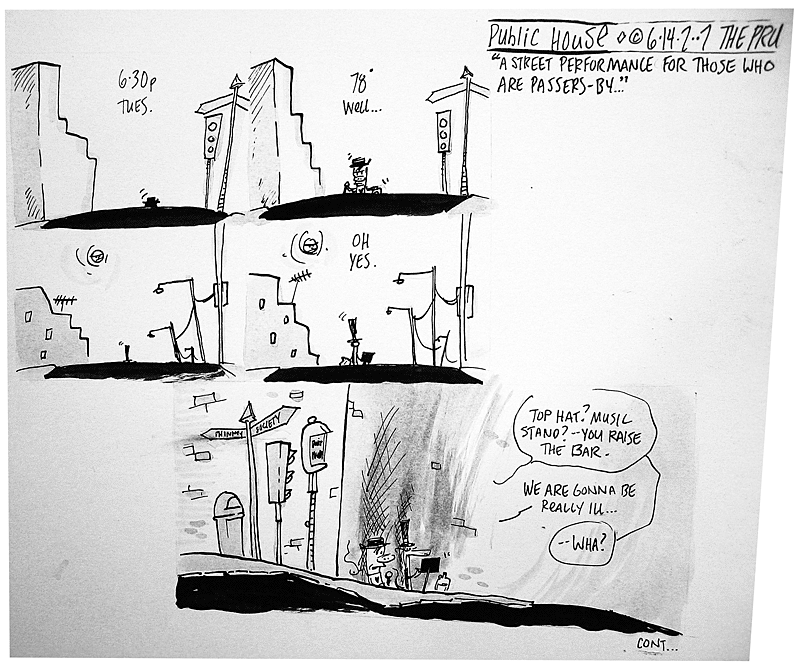 Public House ◇ © 6·14·2··7 THE PRU
"A STREET PERFORMANCE FOR THOSE WHO
ARE PASSERS-BY..."
6:30p
TUES.
78°
WELL...
OH
YES.
SOCIETY
TOP HAT? MUSIC
STAND? --YOU RAISE
THE BAR.
WE ARE GONNA BE
REALLY ILL...
--WHA?
CONT...